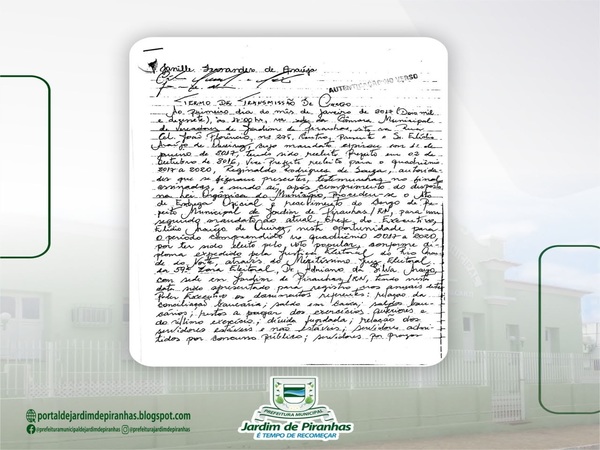 Janille Fernandes de Araújo
AUTENTICAÇÃO NO VERSO
TERMO DE TRANSMISSÃO DE CARGO
Ao primeiro dia do mês de janeiro de 2017 (Dois mil
e dezesete), às horas, na sede da Câmara Municipal
de Vereadores de Jardim de Piranhas, sito na Rua
Cel. João Florêncio, nº 235, Centro, Presente o Sr. Elídio
Araújo de Queiroz, cujo mandato expirou em
janeiro de 2017, tendo sido reeleito Prefeito em 02 de
outubro de 2016, Vice Prefeito reeleito para o quadriênio
2017 a 2020, Reginaldo Rodrigues de Souza, autorida-
des que se fizeram presentes, testemunhas no final
assinadas, e sendo aí, após cumprimento do disposto
na Lei Orgânica do Município, procedeu-se o Ato
de Entrega Oficial e recebimento do Cargo de Pre-
feito Municipal de Jardim de Piranhas/RN, para um
segundo mandato ao atual, Chefe do Executivo,
Elídio Araújo de Queiroz, nesta oportunidade para
o período compreendido no quadriênio 2017 a 2020,
por ter sido eleito pelo voto popular, conforme di-
ploma expedido pela Justiça Eleitoral do Rio Gran-
de do Norte, através do Meritíssimo Juiz Eleitoral
da Zona Eleitoral, Dr. Adriano da Silva Araújo,
com sede em Jardim de Piranhas/RN, tendo nesta
data sido apresentado para registro nos anais deste
Poder Executivo os documentos referentes: relação da
conciliação bancária; saldo em caixa; saldos ban-
cários; restos a pagar dos exercícios anteriores e
do último exercício; dívida fundada; relação dos
servidores estáveis e não estáveis; servidores admi-
tidos por concurso público; servidores por prazo
portaldejardimdepiranhas.blogspot.com
@prefeituramunicipaldejardimdepiranhas @prefeiturajardimdepiranhas
PREFEITURA MUNICIPAL
Jardim de Piranhas
É TEMPO DE RECOMEÇAR